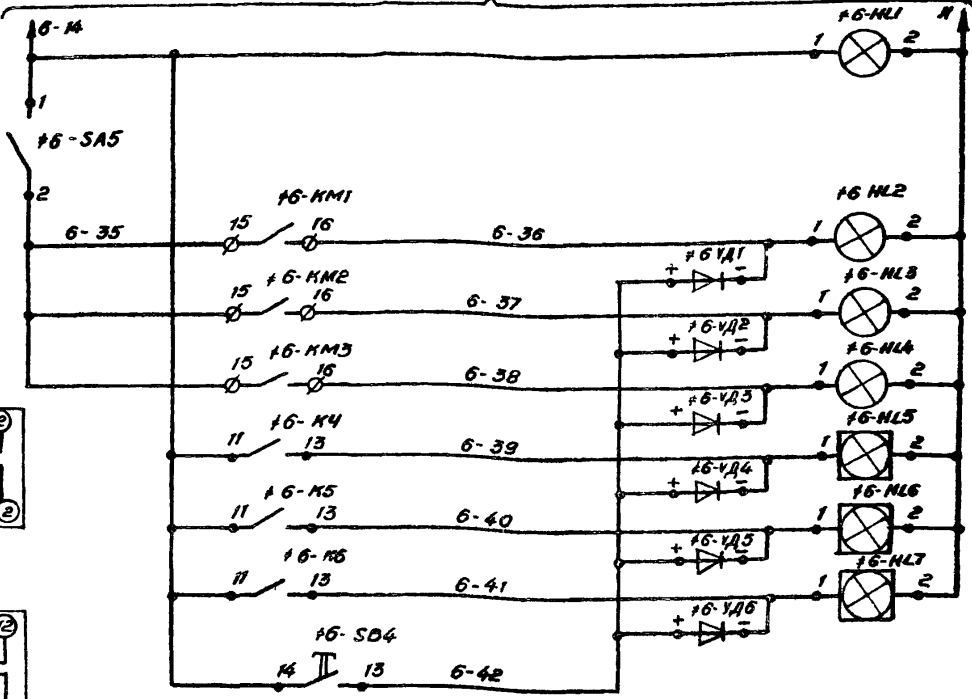 6-14
≠6-HL1
N
1
2
1
≠6-SA5
2
≠6-KM1
≠6 HL2
6-35
15
16
6-36
1
2
≠6 VД1
+
-
≠6-KM2
≠6-HL3
15
16
6-37
1
2
≠6-VД2
+
-
≠6-KM3
≠6-HL4
15
16
6-38
1
2
≠6-VД3
+
-
≠6-K4
≠6-HL5
11
13
6-39
1
2
≠6-VД4
+
-
≠6-K5
≠6-HL6
11
13
6-40
1
2
2
≠6-VД5
+
-
≠6-K6
≠6-HL7
11
13
6-41
1
2
≠6-VД6
+
-
12
≠6-SB4
14
13
6-42